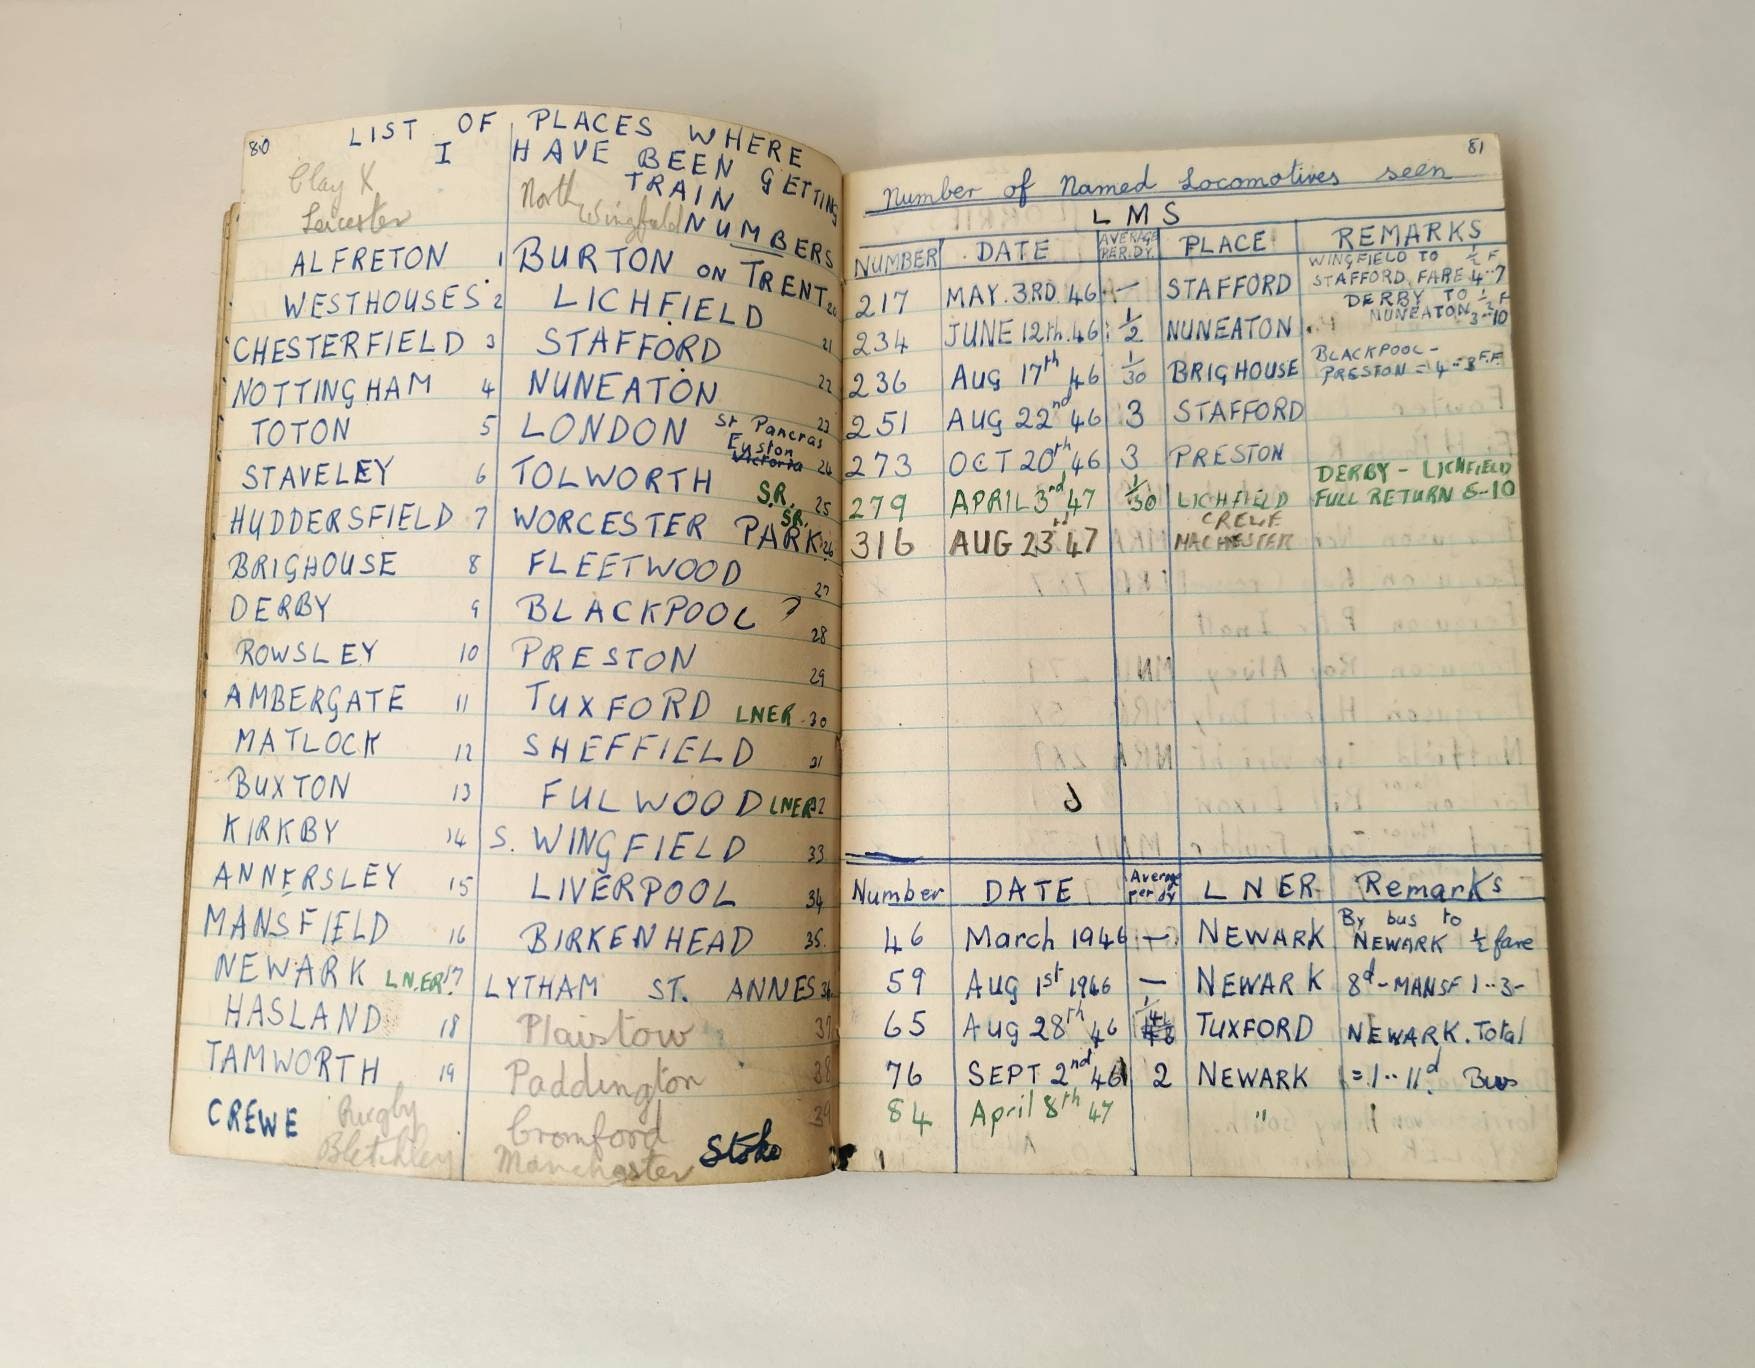 80
LIST OF PLACES WHERE
I HAVE BEEN GETTING
TRAIN
NUMBERS
Clay X
Leicester
North
Wingfield
ALFRETON 1
WESTHOUSES 2
CHESTERFIELD 3
NOTTINGHAM 4
TOTON 5
STAVELEY 6
HUDDERSFIELD 7
BRIGHOUSE 8
DERBY 9
ROWSLEY 10
AMBERGATE 11
MATLOCK 12
BUXTON 13
KIRKBY 14
ANNERSLEY 15
MANSFIELD 16
NEWARK LNER 17
HASLAND 18
TAMWORTH 19
CREWE
Rugby
Bletchley
BURTON ON TRENT 20
LICHFIELD 21
STAFFORD 22
NUNEATON 23
LONDON St Pancras
Euston
Victoria 24
TOLWORTH S.R. 25
WORCESTER PARK S.R. 26
FLEETWOOD 27
BLACKPOOL ? 28
PRESTON 29
TUXFORD LNER 30
SHEFFIELD 31
FULWOOD LNER 32
S. WINGFIELD 33
LIVERPOOL 34
BIRKENHEAD 35
LYTHAM ST. ANNES 36
Plaistow 37
Paddington 38
Cromford 39
Manchester
Stoke
81
Number of Named Locomotives seen
LMS
NUMBER DATE AVERAGE PER.DY. PLACE REMARKS
217 MAY. 3RD. 46 — STAFFORD WINGFIELD TO ½ F
STAFFORD, FARE 4--7
234 JUNE 12th. 46 ½ NUNEATON DERBY TO ½ F
NUNEATON 3--10
236 AUG 17th 46 1/30 BRIGHOUSE BLACKPOOL -
PRESTON = 4-3 F.F.
251 AUG 22nd 46 3 STAFFORD
273 OCT 20th 46 3 PRESTON
279 APRIL 3rd 47 1/30 LICHFIELD DERBY - LICHFIELD
FULL RETURN 5-10
316 AUG 23rd 47 CREWE
MACHESTER
Number DATE Average per dy LNER Remarks
46 March 1946 — NEWARK By bus to
NEWARK ½ fare
59 AUG 1st 1946 — NEWARK 8d - MANSF 1--3-
65 Aug 28th 46 TUXFORD NEWARK. Total
76 SEPT 2nd 46 2 NEWARK = 1--11d. Bus
84 April 8th 47 "